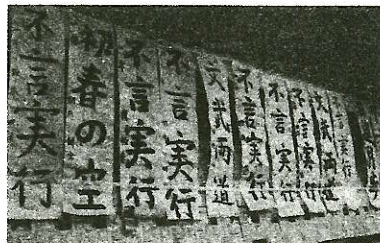 不言実行
初春の空
不言実行
不言実行
文武両道
不言実行
不言実行
不言実行
文武両道
言実行